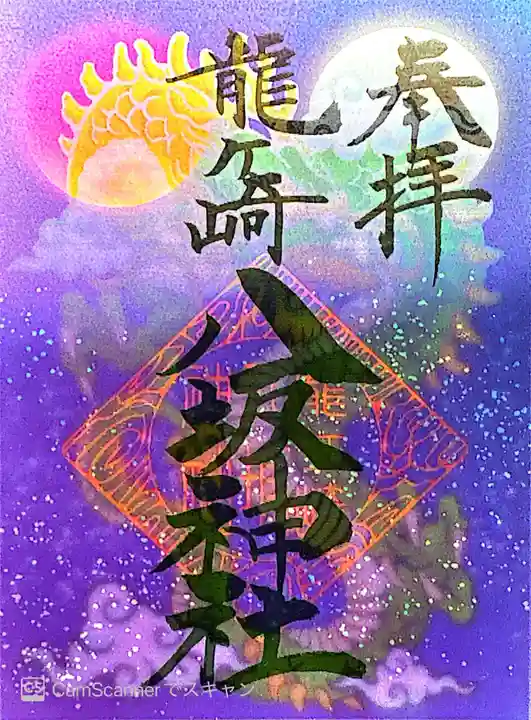 奉拝
龍ケ崎
八坂神社
CamScanner でスキャン